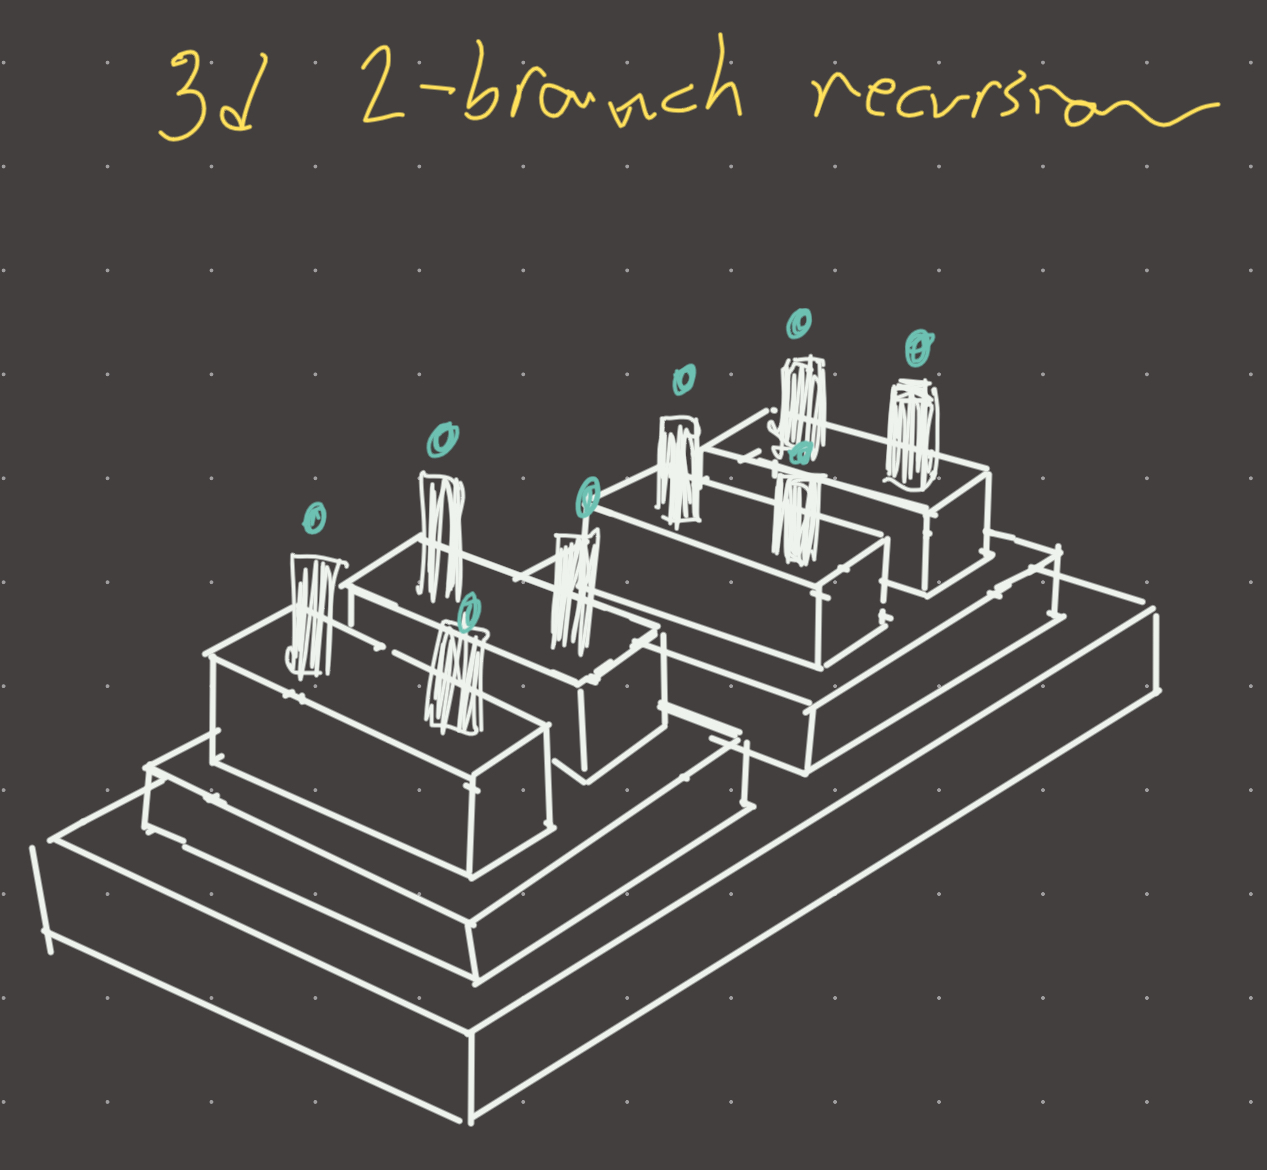 3d 2-branch recursion